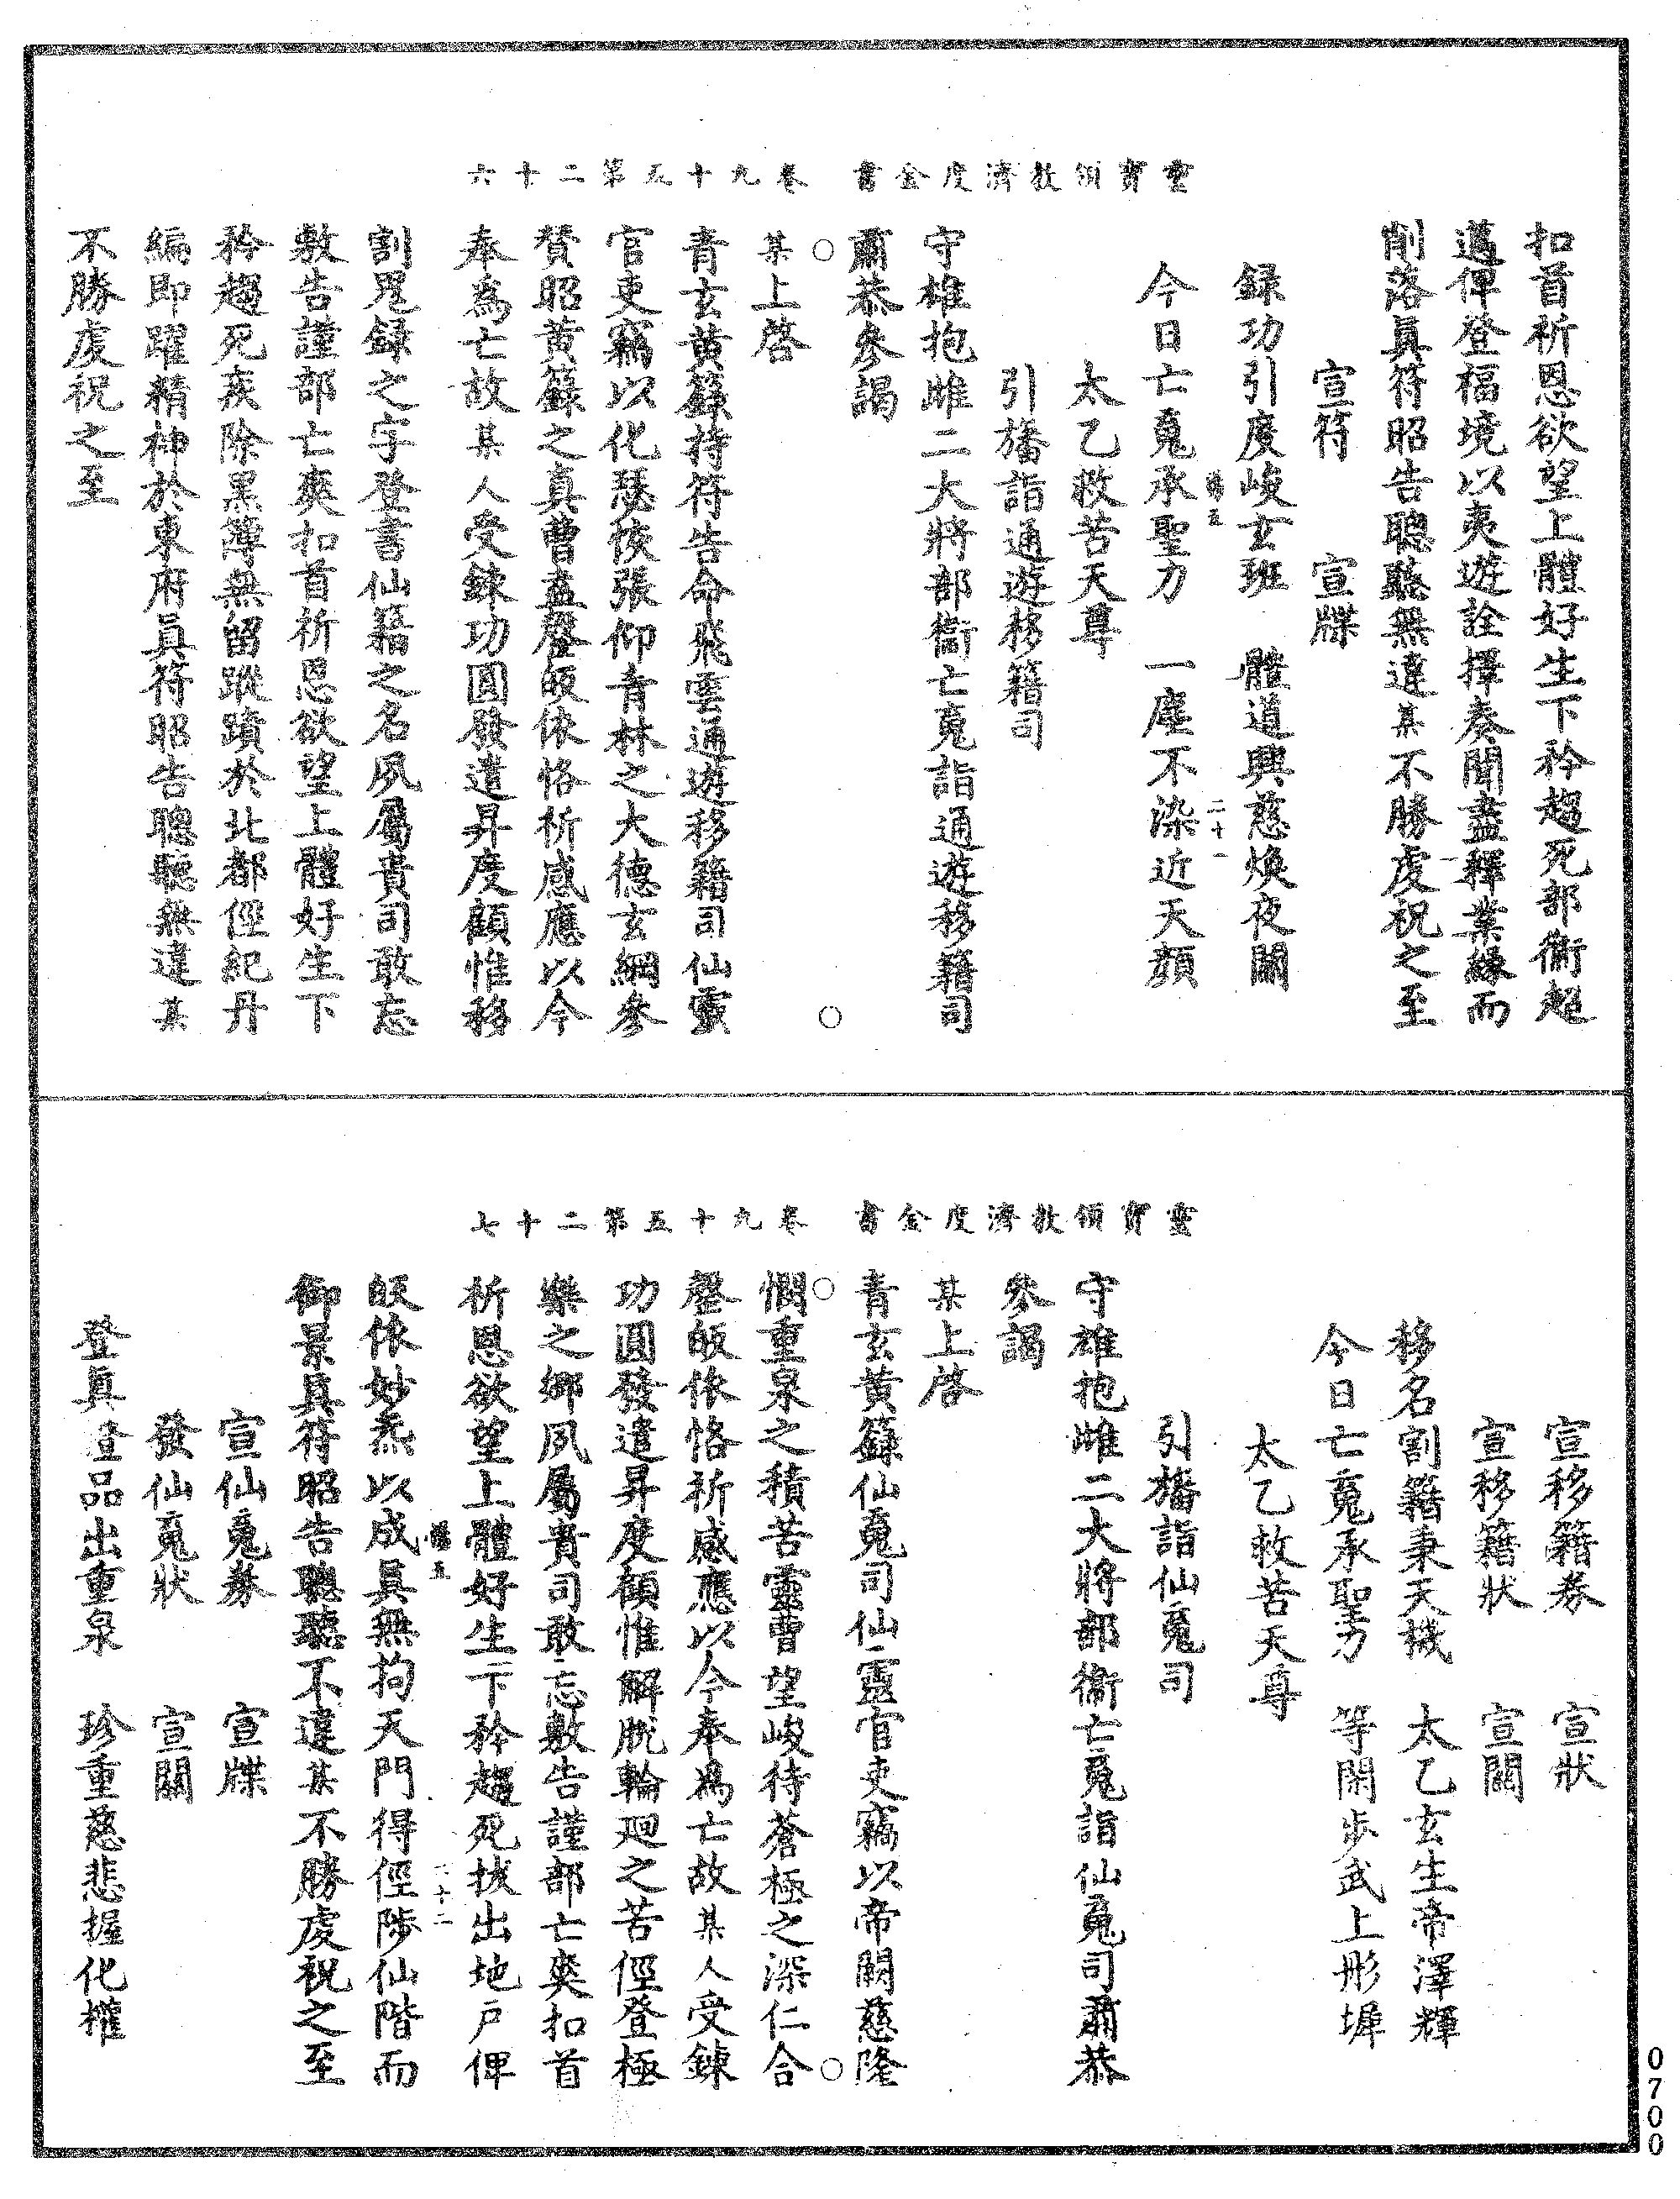 靈寶領教濟度金書　卷九十五第二十六
扣首祈恩欲望上體好生下矜趨死部衛超
邁俾登福境以夷遊詮擇奏聞盡釋業緣而
削落真符昭告聰聽無違某不勝虔祝之至
宣符　宣牒
録功引度峻玄班　體道興慈煥夜關
二十一
今日亡䰟承聖力　一塵不染近天顔
太乙救苦天尊
引旛詣通遊移籍司
守雄抱雌二大將部衛亡䰟詣通遊移籍司
肅恭參謁
某上啓
青玄黄籙持符告命飛雲通遊移籍司仙靈
官吏竊以化瑟恢張仰青林之大德玄綱參
賛昭黄籙之真曹盍罄皈依恪祈感應以今
奉為亡故某人受錬功圓發遣昇度顧惟移
割䰟録之字登書仙籍之名夙屬貴司敢忘
敷告謹部亡爽扣首祈恩欲望上體好生下
矜趨死疾除黒簿無留蹤蹟於北都徑紀丹
編即躍精神於東府真符昭告聰聽無違某
不勝虔祝之至
靈寶領教濟度金書　卷九十五第二十七
宣移籍券　宣狀
宣移籍狀　宣關
移名割籍秉天機　太乙玄生帝澤輝
今日亡䰟承聖力　等閑步武上彤墀
太乙救苦天尊
引旛詣仙䰟司
守雄抱雌二大將部衛亡䰟詣仙䰟司肅恭
參謁
某上啓
青玄黄籙仙䰟司仙靈官吏竊以帝闕慈隆
憫重泉之積苦靈曹望峻待蒼極之深仁合
罄皈依恪祈感應以今奉為亡故某人受錬
功圓發遣昇度顧惟解脫輪廻之苦徑登極
樂之鄉夙屬貴司敢忘敷告謹部亡爽扣首
祈恩欲望上體好生下矜趨死拔出地戶俾
皈依妙炁以成真無拘天門得徑陟仙階而
二十二
御景真符昭告聰聽不違某不勝虔祝之至
宣仙䰟券　宣牒
發仙䰟狀　宣關
登真證品出重泉　珍重慈悲握化權
0700